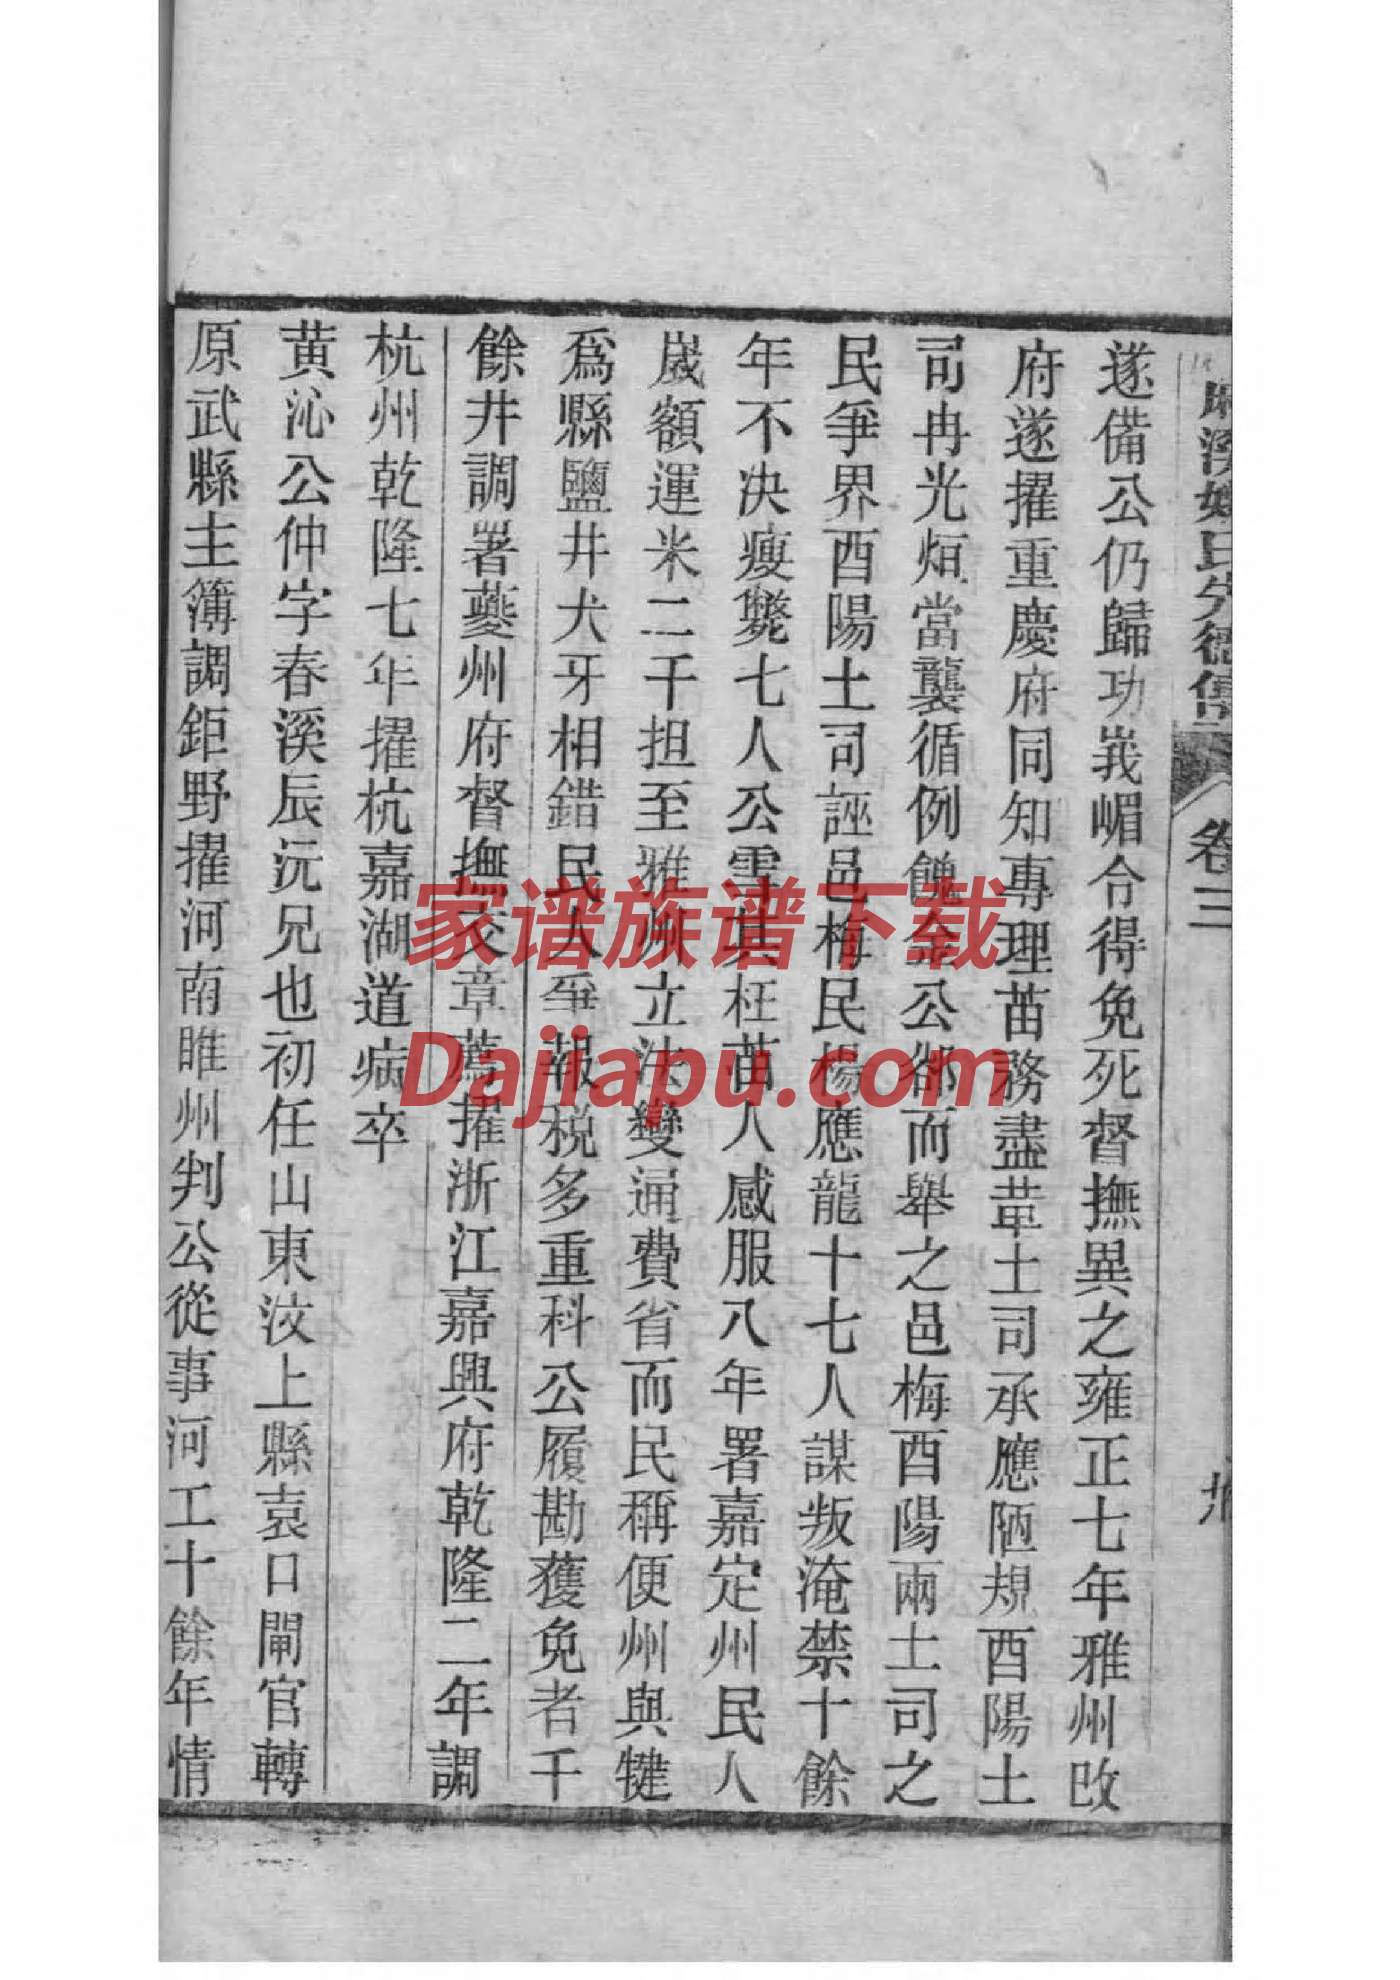 麻溪姚氏先德傳 卷三
遂備公仍歸功峩嵋令得免死督撫異之雍正七年雅州改
府遂擢重慶府同知專理苗務盡革土司承應陋規酉陽土
司冉光烜當襲循例餽金公卻而舉之邑梅酉陽兩土司之
民爭界酉陽土司誣邑梅民楊應龍十七人謀叛淹禁十餘
年不決瘦斃七人公雪其枉苗人感服八年署嘉定州民人
歲額運米二千担至雅州立法變通費省而民稱便州與犍
爲縣鹽井犬牙相錯民人爭報税多重科公履勘獲免者千
餘井調署夔州府督撫交章薦擢浙江嘉興府乾隆二年調
杭州乾隆七年擢杭嘉湖道病卒
黄沁公仲字春溪辰沅兄也初任山東汶上縣袁口閘官轉
原武縣主簿調鉅野擢河南睢州判公從事河工十餘年情
家谱族谱下载
Dajiapu.com